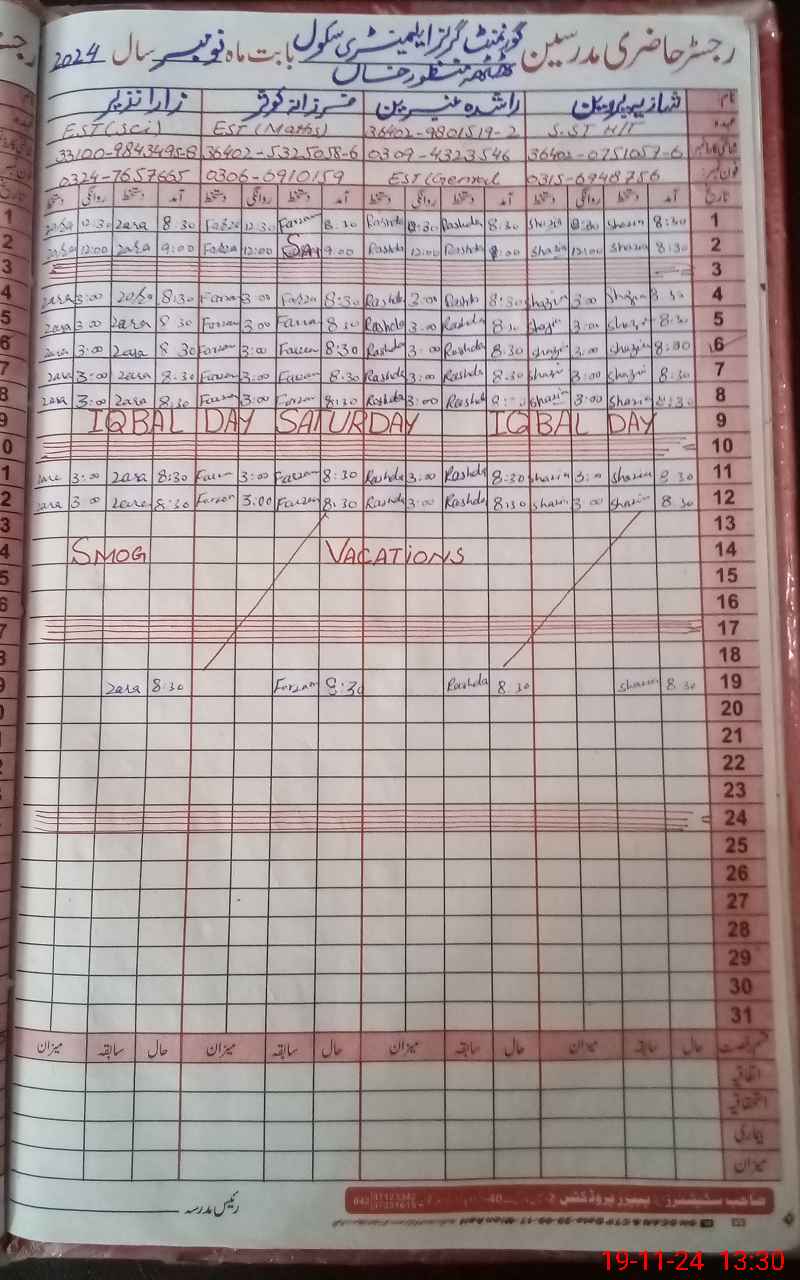 رجسٹر حاضری مدرسین گورنمنٹ گرلز ایلیمنٹری سکول بابت ماہ نومبر سال 2024
ٹھٹھہ منظور خاں
نام شازیہ پروین راشدہ نسرین فرزانہ کوثر زارا نزیر
عہدہ S.ST H/T 36402-9801519-2 EST (Maths) EST (Sci)
36402-0751057-6 0309-4323546 36402-5325058-6 33100-9843495-8
0315-6948756 EST (General 0306-6910159 0324-7657665
تاریخ آمد دستخط روانگی دستخط آمد دستخط روانگی دستخط آمد دستخط روانگی دستخط آمد دستخط روانگی دستخط
zara 12:30 zara 8:30 Farzan 12:30 Farzan 8:30 Rashda 12:30 Rashda 8:30 Shazia 12:30 Shazia 8:30 1
zara 12:00 zara 9:00 Farzan 12:00 9:00 Rashda 12:00 Rashda 9:00 Shazia 12:00 Shazia 8:30 2
3
zara 3:00 zara 8:30 Farzan 3:00 Farzan 8:30 Rashda 3:00 Rashda 8:30 Shazia 3:00 Shazia 8:30 4
zara 3:00 zara 8:30 Farzan 3:00 Farzan 8:30 Rashda 3:00 Rashda 8:30 Shazia 3:00 Shazia 8:30 5
zara 3:00 zara 8:30 Farzan 3:00 Farzan 8:30 Rashda 3:00 Rashda 8:30 Shazia 3:00 Shazia 8:00 6
zara 3:00 zara 8:30 Farzan 3:00 Farzan 8:30 Rashda 3:00 Rashda 8:30 Shazia 3:00 Shazia 8:30 7
zara 3:00 zara 8:30 Farzan 3:00 Farzan 8:30 Rashda 3:00 Rashda Shazia 3:00 Shazia 8:30 8
IQBAL DAY SATURDAY IQBAL DAY 9
10
zara 3:00 zara 8:30 Farzan 3:00 Farzan 8:30 Rashda 3:00 Rashda 8:30 Shazia 3:00 Shazia 8:30 11
zara 3:00 zara 8:30 Farzan 3:00 Farzan 8:30 Rashda 3:00 Rashda 8:30 Shazia 3:00 Shazia 8:30 12
13
SMOG VACATIONS 14
15
16
17
18
zara 8:30 Farzan 8:30 Rashda 8:30 Shazia 8:30 19
20
21
22
23
24
25
26
27
28
29
30
31
قسم رخصت حال سابقہ میزان حال سابقہ میزان حال سابقہ میزان حال سابقہ میزان
اتفاقیہ
استحقاقیہ
بیماری
میزان
رئیس مدرسہ
صاحب سٹیشنرز پیپر پروڈکٹس
19-11-24 13:30